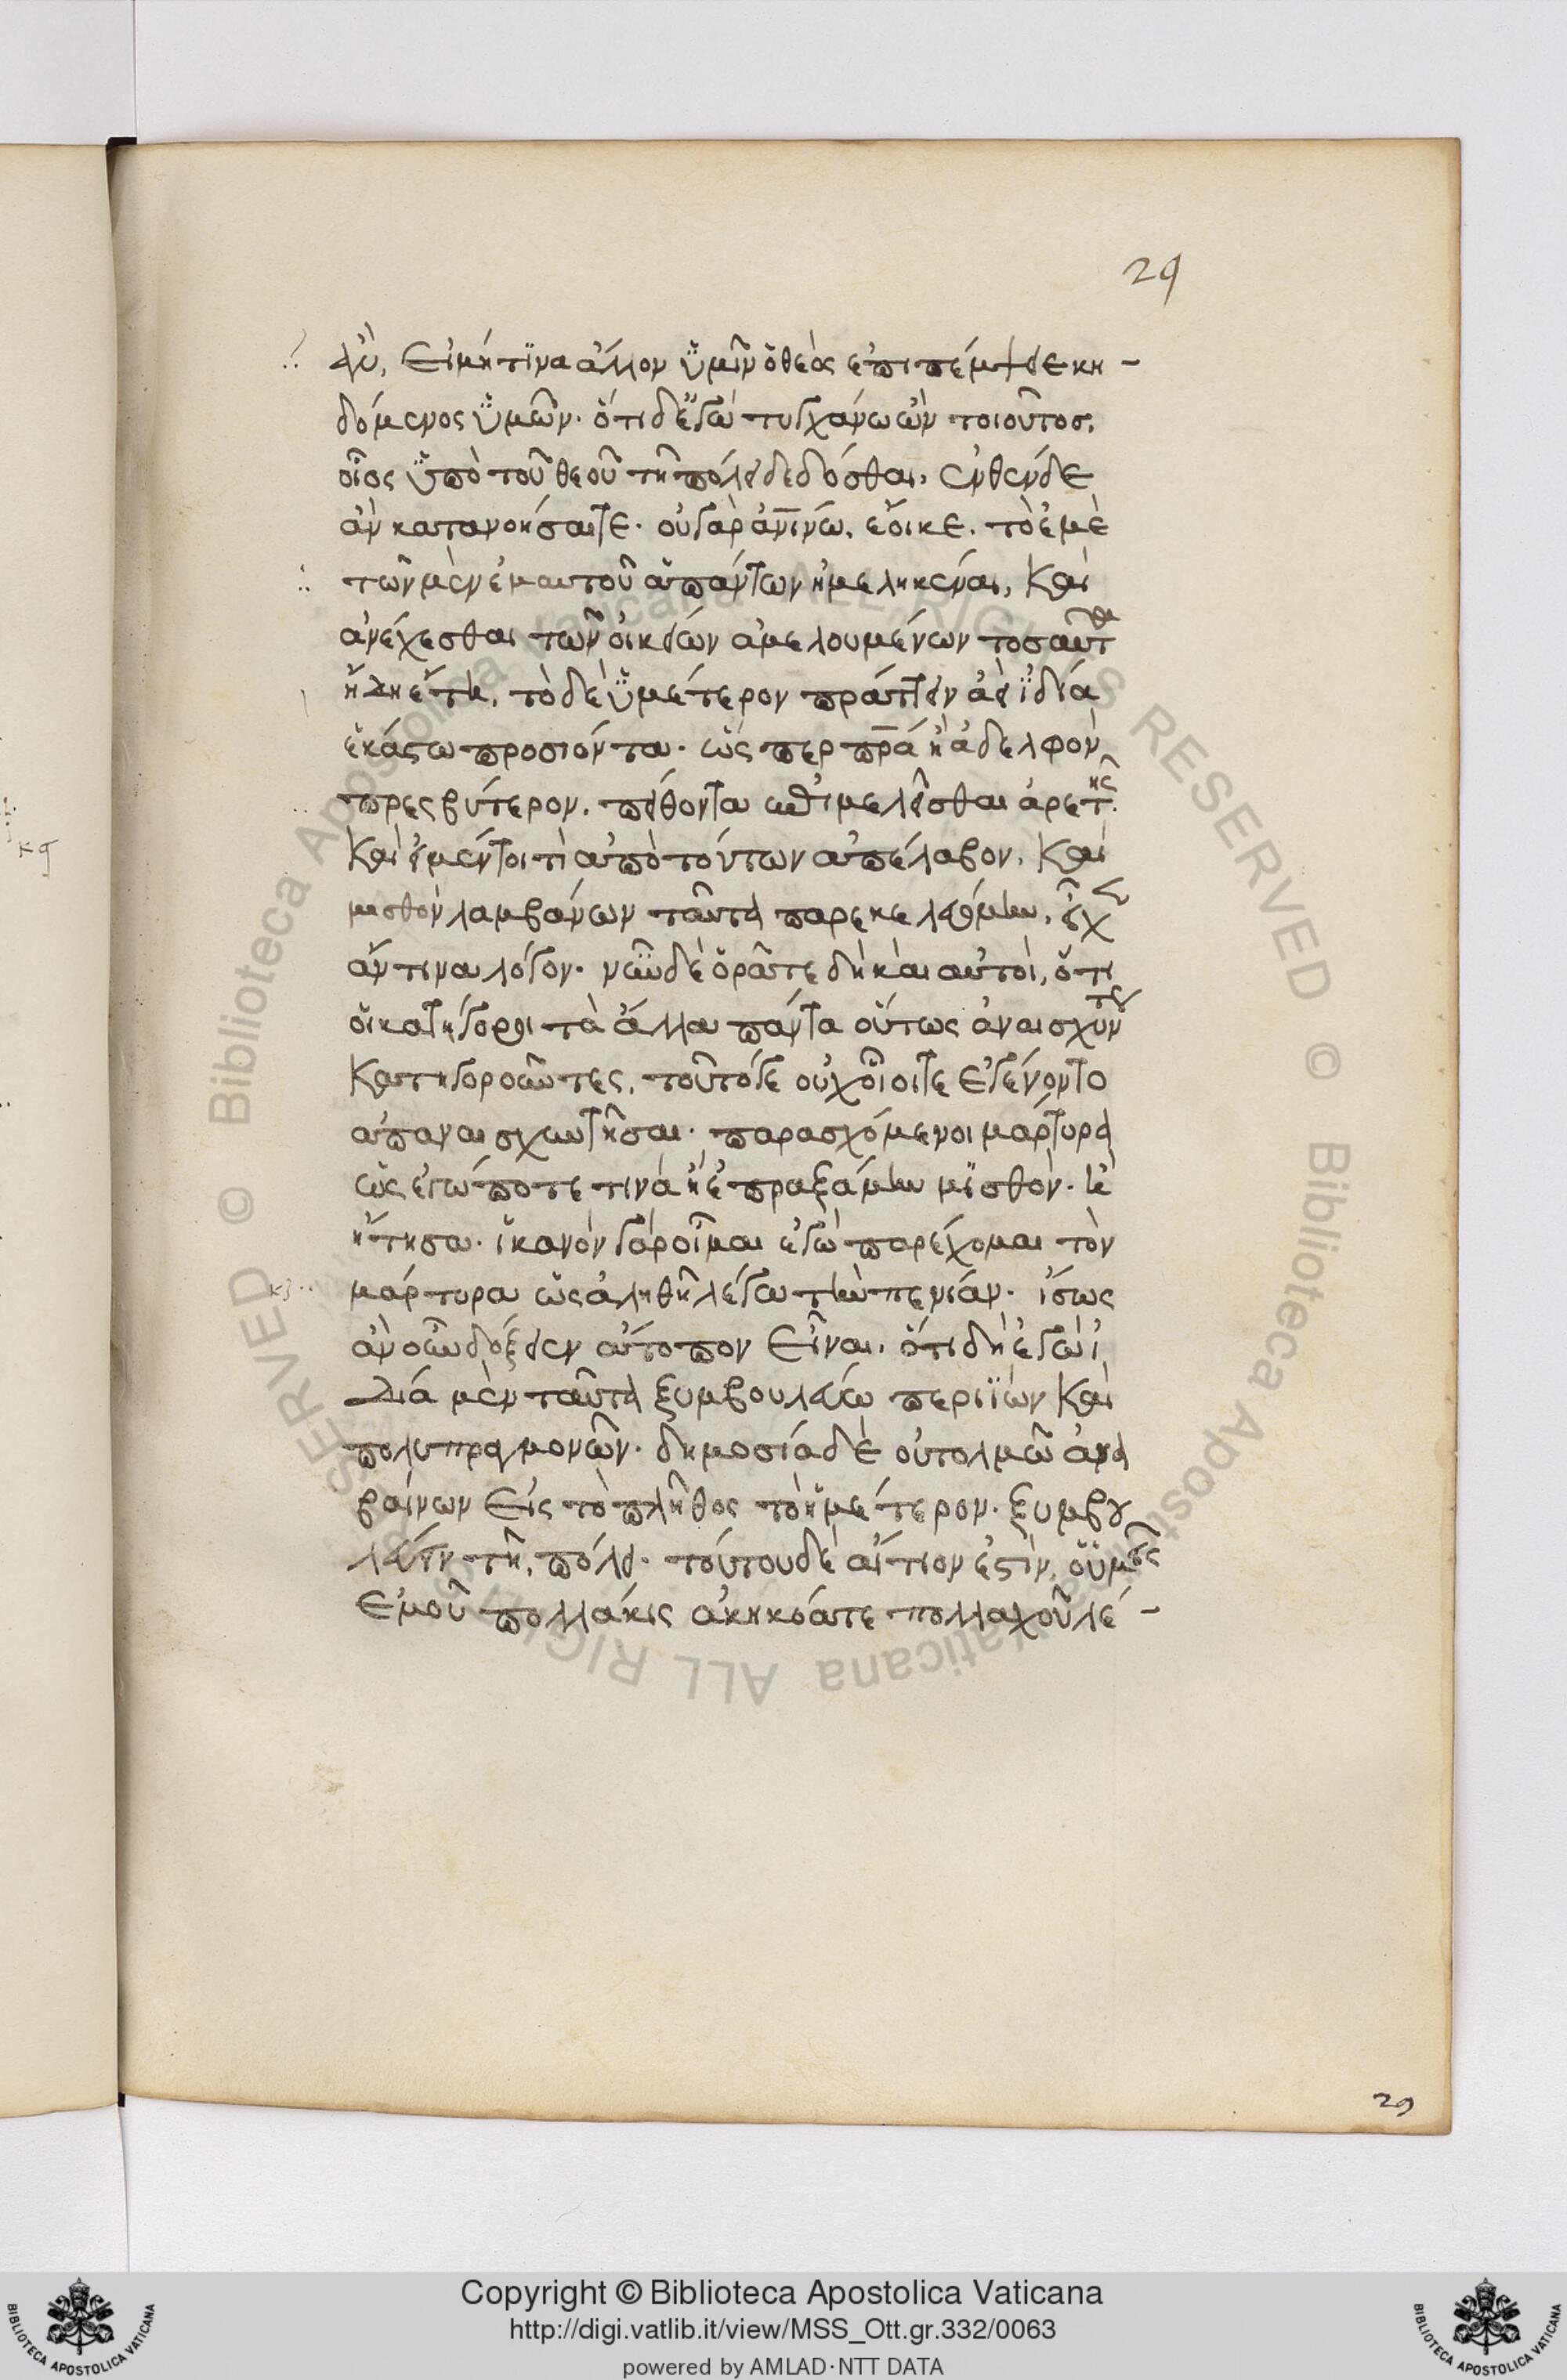 29
ἂν, εἰ μή τινα ἄλλον ὑμῖν ὁ θεὸς ἐπιπέμψειε κη-
δόμενος ὑμῶν. ὅτι δ' ἐγὼ τυγχάνω ὢν τοιοῦτος,
οἷος ὑπὸ τοῦ θεοῦ τῆ πόλει δεδόσθαι, ἐνθένδε
ἂν κατανοήσαιτε. οὐ γὰρ ἀνίνω, ἔοικε. τὸ ἐμὲ
τῶν μὲν ἐμαυτοῦ ἁπάντων ἠμεληκέναι, καὶ
ἀνέχεσθαι τῶν οἰκείων ἀμελουμένων τοσαῦτα
ἤδη ἔτη, τὸ δὲ ὑμέτερον πράττειν ἀεὶ ἰδία
ἑκάστω προσιόντα. ὥσπερ πρα ἢ ἀδελφὸν
πρεσβύτερον. πείθοντα ἐπιμελεῖσθαι ἀρετῆς.
καὶ εἰ μέντοι τὶ ἀπὸ τούτων ἀπέλαβον, καὶ
μισθὸν λαμβάνων ταῦτα παρεκελευόμην, εἶχεν
ἄν τινα λόγον. νῦν δὲ ὁρᾶτε δὴ καὶ αὐτοὶ, ὅτι
οἱ κατήγοροι τὰ ἄλλα πάντα οὕτως ἀναισχύντως
κατηγοροῦντες, τοῦτό γε οὐχ οἷοί τε ἐγένοντο
ἀπαναισχυντῆσαι. παρασχόμενοι μάρτυρα
ὡς ἐγώ ποτε τινὰ ἢ ἐπραξάμην μισθὸν. ἢ
ἤτησα. ἱκανὸν γὰρ οἶμαι ἐγὼ παρέχομαι τὸν
μάρτυρα ὡς ἀληθῆ λέγω τὴν πενίαν. ἴσως
ἂν οὖν δόξειεν ἄτοπον εἶναι, ὅτι δὴ ἐγὼ ἰ
δία μὲν ταῦτα ξυμβουλεύω περιϊὼν καὶ
πολυπραγμονῶν. δημοσία δὲ οὐ τολμῶ ἀνα
βαίνων εἰς τὸ πλῆθος τὸ ἡμέτερον. ξυμβου
λεύειν τῆ πόλει. τούτου δὲ αἴτιον ἐστὶν, ὃ ὑμεῖς
ἐμοῦ πολλάκις ἀκηκόατε πολλαχοῦ λέ-
29
Copyright © Biblioteca Apostolica Vaticana
http://digi.vatlib.it/view/MSS_Ott.gr.332/0063
powered by AMLAD·NTT DATA